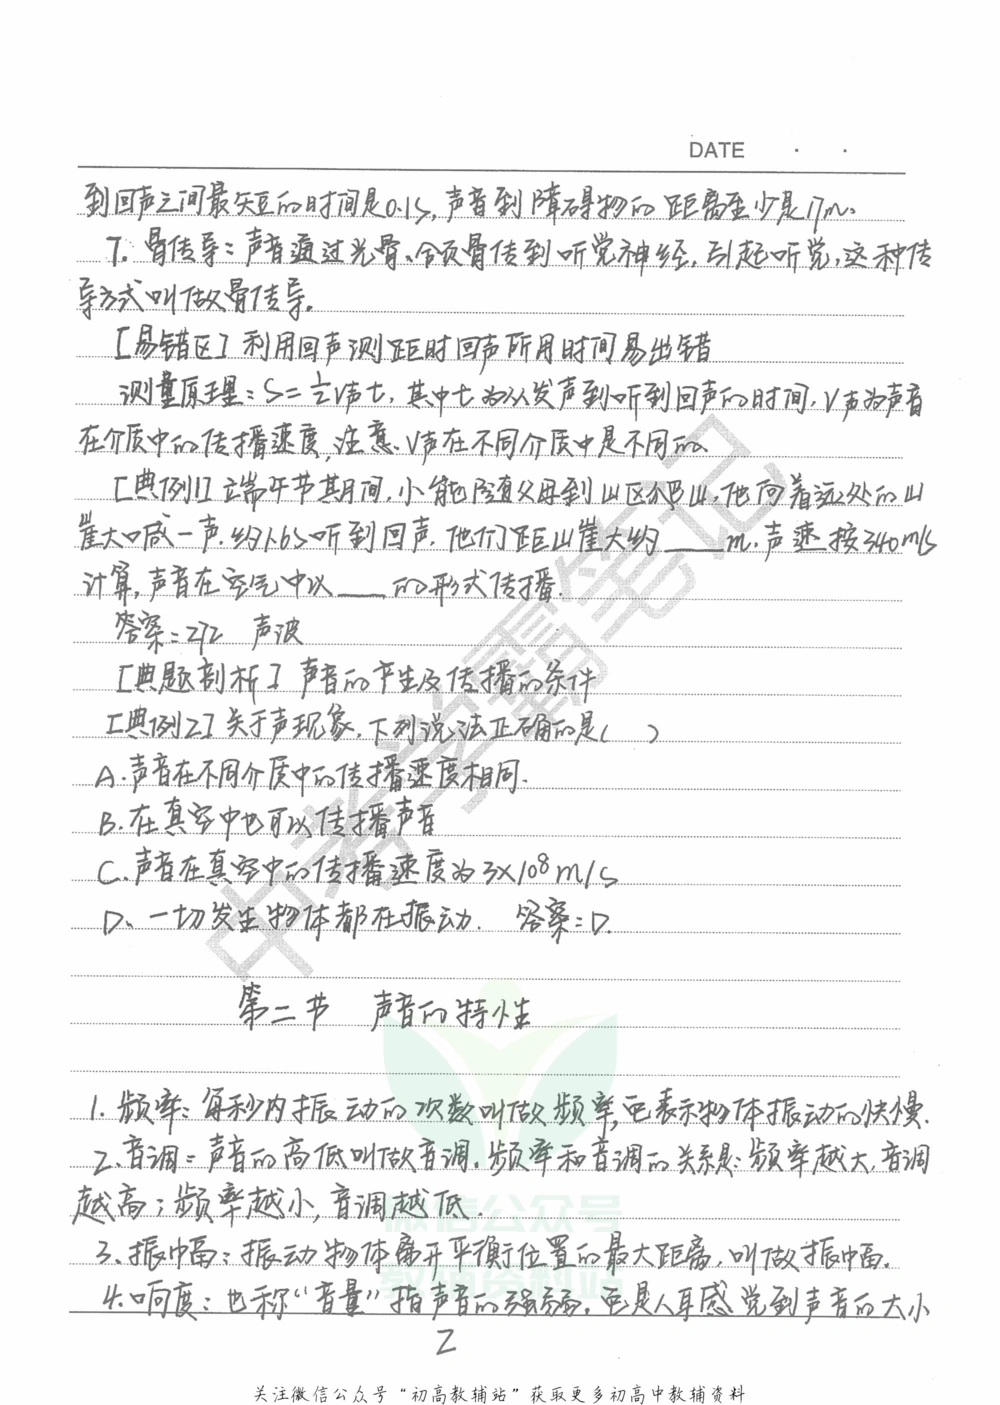 DATE · ·
到回声之间最短的时间是0.1s,声音到障碍物的距离至少是17m.
7. 骨传导:声音通过头骨、颌骨传到听觉神经,引起听觉,这种传
导方式叫做骨传导.
[易错区] 利用回声测距时回声所用时间易出错
测量原理:S=½V声t,其中t为从发声到听到回声的时间,V声为声音
在介质中的传播速度,注意.V声在不同介质中是不同的.
[典例1] 端午节其期间,小能随父母到山区郊山,他向着远处的山
崖大喊一声.约1.6s听到回声.他们距山崖大约____m.声速按340m/s
计算,声音在空气中以____的形式传播.
答案:272 声波
[典题剖析] 声音的产生及传播的条件
[典例2] 关于声现象,下列说法正确的是( )
A.声音在不同介质中的传播速度相同.
B.在真空中也可以传播声音
C.声音在真空中的传播速度为3×10⁸m/s
D、一切发生物体都在振动. 答案:D.
第二节 声音的特性
1.频率:每秒内振动的次数叫做频率,它表示物体振动的快慢.
2.音调:声音的高低叫做音调.频率和音调的关系是:频率越大,音调
越高;频率越小,音调越低.
3、振幅:振动物体离开平衡位置的最大距离,叫做振幅.
4.响度:也称“音量”指声音的强弱,它是人耳感觉到声音的大小
2
关注微信公众号“初高教辅站”获取更多初高中教辅资料
中考学霸笔记
微信公众号
教辅资料站